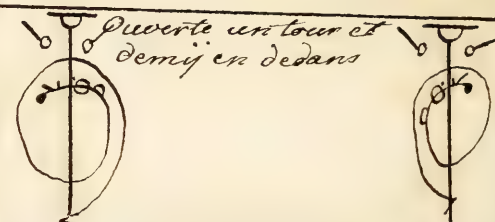 Ouverte un tour et
demij en dedans